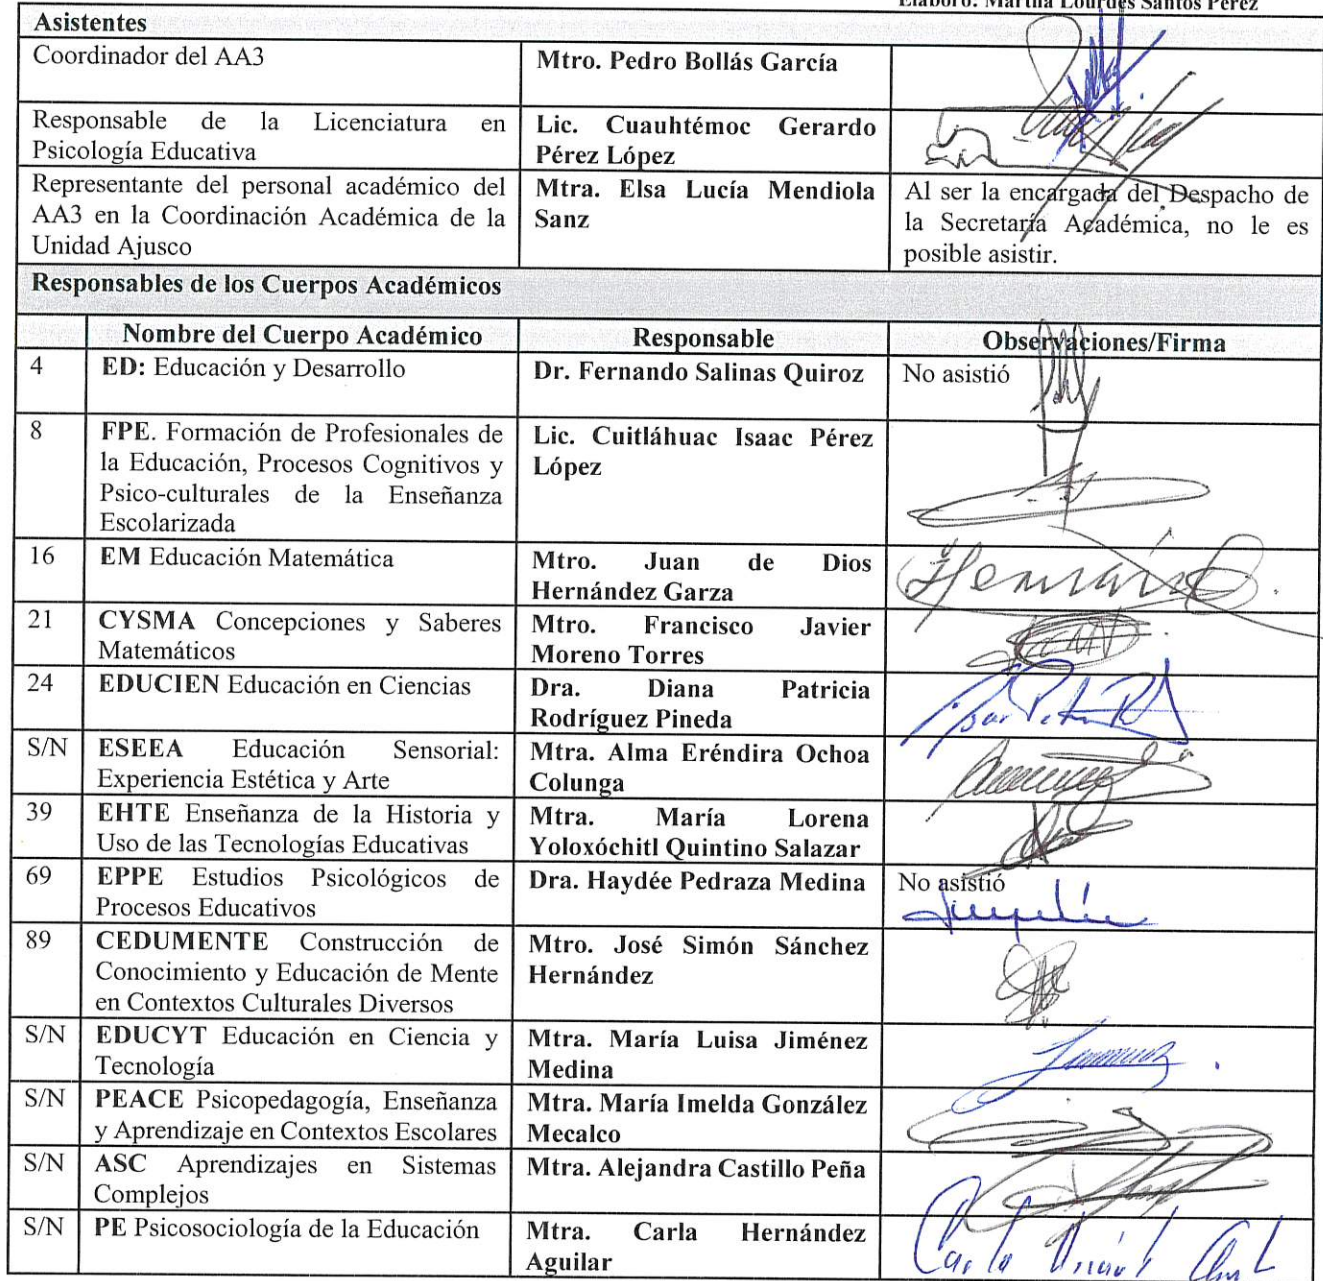 Elaboró: Martha Lourdes Santos Pérez
Asistentes
Coordinador del AA3
Mtro. Pedro Bollás García
Responsable de la Licenciatura en
Psicología Educativa
Lic. Cuauhtémoc Gerardo
Pérez López
Representante del personal académico del
AA3 en la Coordinación Académica de la
Unidad Ajusco
Mtra. Elsa Lucía Mendiola
Sanz
Al ser la encargada del Despacho de
la Secretaría Académica, no le es
posible asistir.
Responsables de los Cuerpos Académicos
Nombre del Cuerpo Académico
Responsable
Observaciones/Firma
4
ED: Educación y Desarrollo
Dr. Fernando Salinas Quiroz
No asistió
8
FPE. Formación de Profesionales de
la Educación, Procesos Cognitivos y
Psico-culturales de la Enseñanza
Escolarizada
Lic. Cuitláhuac Isaac Pérez
López
16
EM Educación Matemática
Mtro. Juan de Dios
Hernández Garza
21
CYSMA Concepciones y Saberes
Matemáticos
Mtro. Francisco Javier
Moreno Torres
24
EDUCIEN Educación en Ciencias
Dra. Diana Patricia
Rodríguez Pineda
S/N
ESEEA Educación Sensorial:
Experiencia Estética y Arte
Mtra. Alma Eréndira Ochoa
Colunga
39
EHTE Enseñanza de la Historia y
Uso de las Tecnologías Educativas
Mtra. María Lorena
Yoloxóchitl Quintino Salazar
69
EPPE Estudios Psicológicos de
Procesos Educativos
Dra. Haydée Pedraza Medina
No asistió
89
CEDUMENTE Construcción de
Conocimiento y Educación de Mente
en Contextos Culturales Diversos
Mtro. José Simón Sánchez
Hernández
S/N
EDUCYT Educación en Ciencia y
Tecnología
Mtra. María Luisa Jiménez
Medina
S/N
PEACE Psicopedagogía, Enseñanza
y Aprendizaje en Contextos Escolares
Mtra. María Imelda González
Mecalco
S/N
ASC Aprendizajes en Sistemas
Complejos
Mtra. Alejandra Castillo Peña
S/N
PE Psicosociología de la Educación
Mtra. Carla Hernández
Aguilar